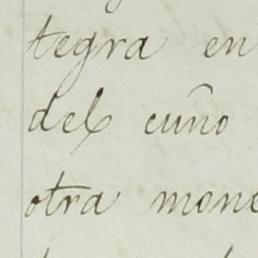 tegra en
del cuño
otra mone